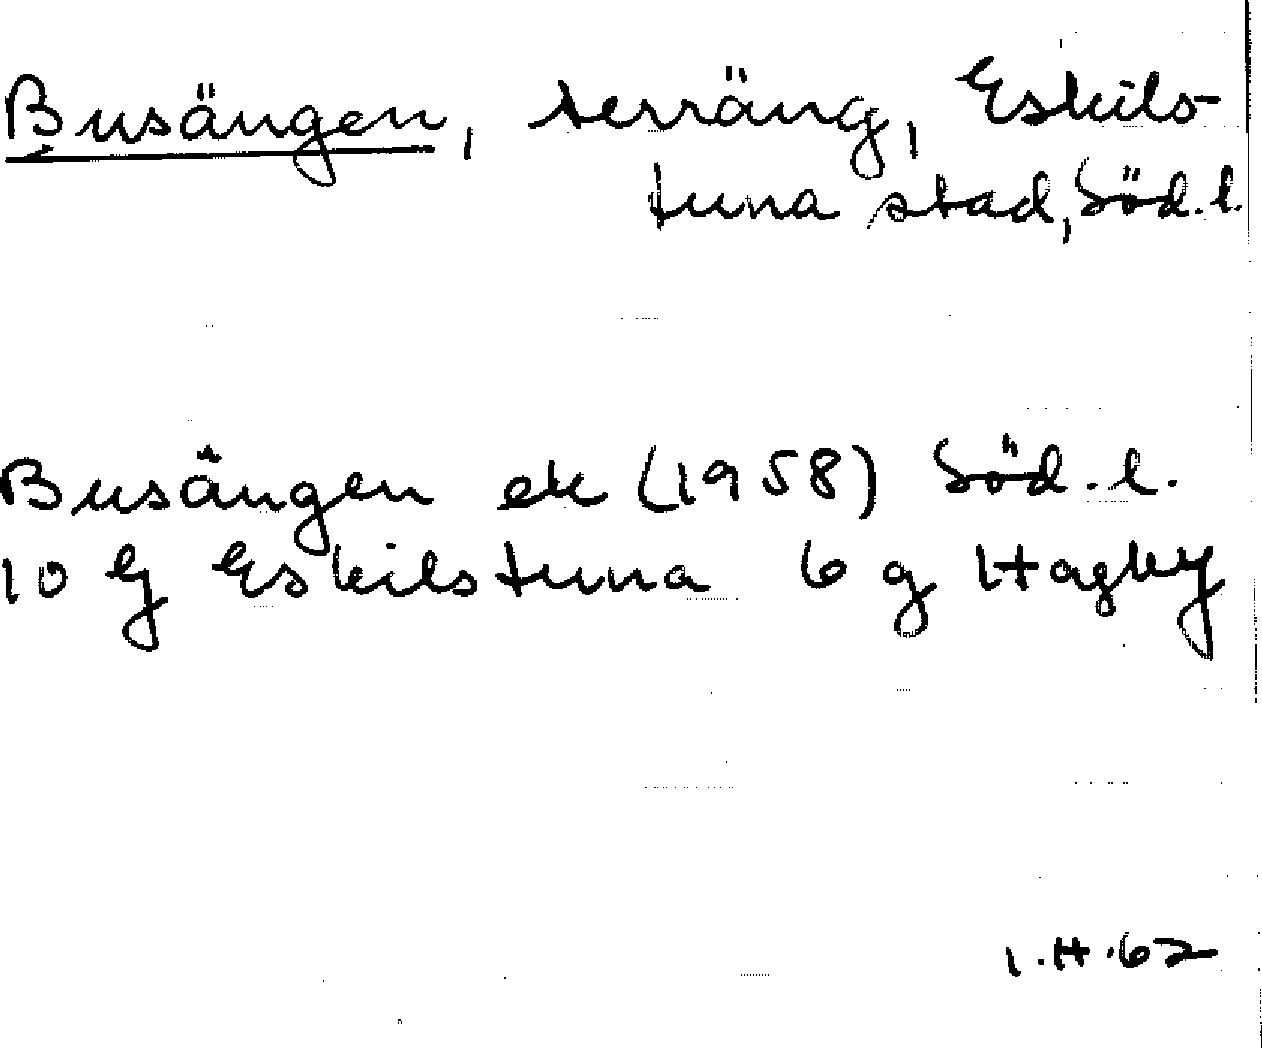 Busängen, terräng, Eskils-
tuna stad, Söd. l.
Busängen ek (1958) Söd. l.
10 G Eskilstuna 6 g Hagby
I.H.62